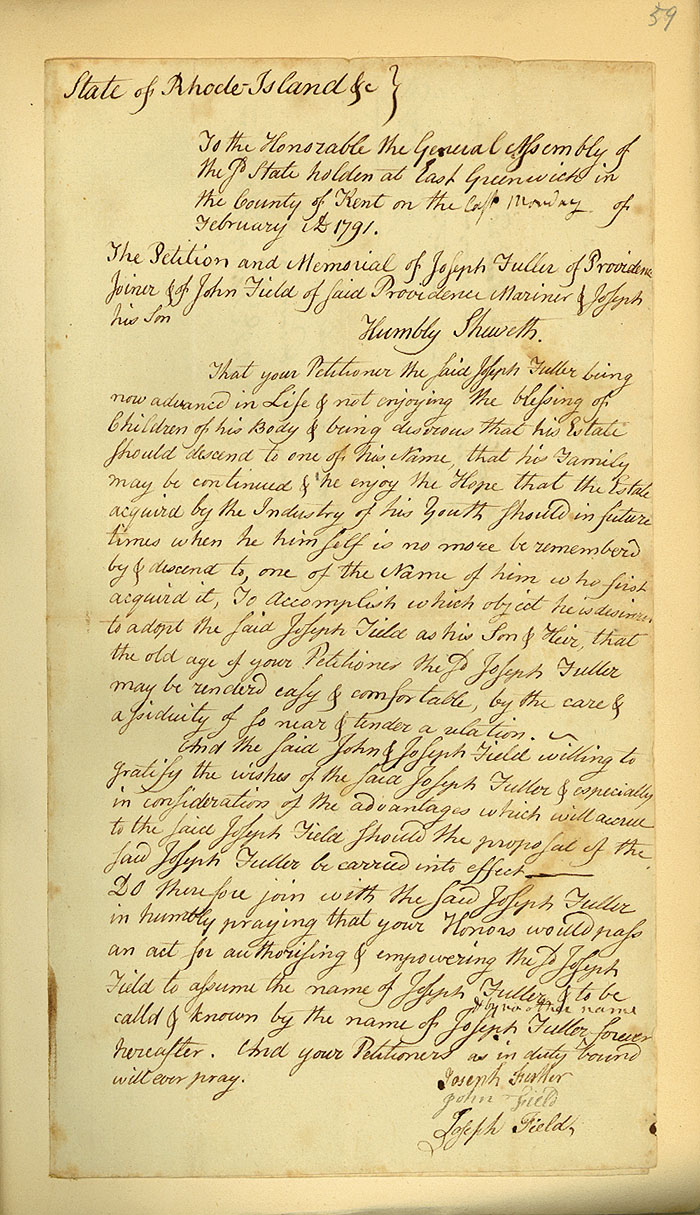 59
State of Rhode-Island &c }
To the Honorable the General Assembly of
the sd State holden at East Greenwich in
the County of Kent on the last Monday of
February AD 1791.
The Petition and Memorial of Joseph Fuller of Providence
Joiner & of John Field of said Providence Mariner & Joseph
his Son
Humbly Sheweth.
That your Petitioner the said Joseph Fuller being
now advanced in Life & not enjoying the blessing of
Children of his Body & being desirous that his Estate
should descend to one of his Name, that his Family
may be continued & he enjoy the Hope that the Estate
acquird by the Industry of his Youth should in future
times when he himself is no more be rememberd
by & descend to, one of the Name of him who first
acquird it, To accomplish which object he is desirous
to adopt the said Joseph Field as his Son & Heir, that
the old age of your Petitioner the sd Joseph Fuller
may be renderd easy & comfortable, by the care &
assiduity of so near & tender a relation.
And the said John & Joseph Field willing to
gratify the wishes of the said Joseph Fuller & especially
in consideration of the advantages which will accrue
to the said Joseph Field should the proposal of the
said Joseph Fuller be carried into effect
Do therefore join with the said Joseph Fuller
in humbly praying that your Honors would pass
an act for authorising & empowering the sd Joseph
Field to assume the name of Joseph Fuller & to be
& by no other name
calld & known by the name of Joseph Fuller forever
hereafter. And your Petitioners as in duty bound
will ever pray.
Joseph Fuller
John Field
Joseph Field